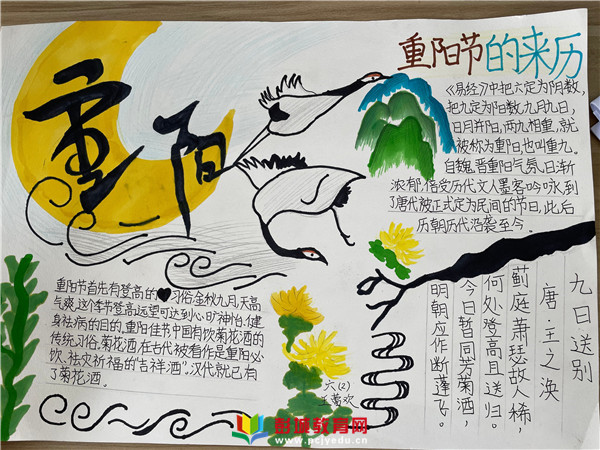 重阳
重阳节的来历
《易经》中把六定为阴数,
把九定为阳数,九月九日,
日月并阳,两九相重,就
被称为重阳也叫重九。
自魏,晋重阳气氛,日渐
浓郁,倍受历代文人墨客吟咏,到
了唐代被正式定为民间的节日,此后
历朝历代沿袭至今。
重阳节首先有登高的习俗,金秋九月,天高
气爽,这个季节登高远望可达到心旷神怡、健
身祛病的目的。重阳佳节中国有饮菊花酒的
传统习俗。菊花酒在古代被看作是重阳必
饮、祛灾祈福的“吉祥酒”。汉代就已有
了菊花酒。
九日送别
唐·王之涣
蓟庭萧瑟故人稀,
何处登高且送归。
今日暂同芳菊酒,
明朝应作断蓬飞。
六(2)
彭城教育网
www.pcjyedu.cn